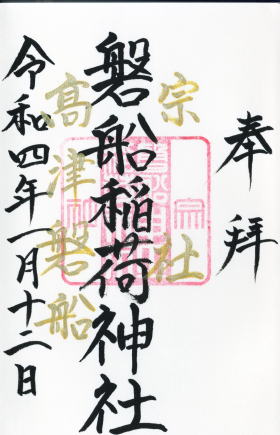 奉拝
宗社
磐船稲荷神社
高津磐船
令和四年一月十二日